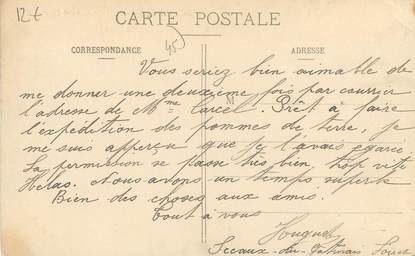 12€
CARTE POSTALE
45
CORRESPONDANCE
ADRESSE
Vous seriez bien aimable de
me donner une deuxième fois par courrier
l'adresse de Mme Carcel. Prêt à faire
l'expédition des pommes de terre, je
me suis apperçu que je l'avais égarée.
La permission se passe très bien, trop vite
Hélas. Nous avons un temps superbe
Bien des choses aux amis.
Tout à vous
Huguet
Sceaux-du-Gatinais Loiret